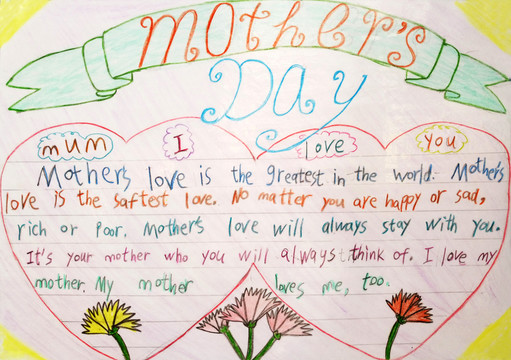 Mother's
Day
mum I love you
Mother's love is the greatest in the world. Mother's
love is the saftest love. No matter you are happy or sad,
rich or poor. Mother's love will always stay with you.
It's your mother who you will always think of. I love my
mother. My mother loves me, too.